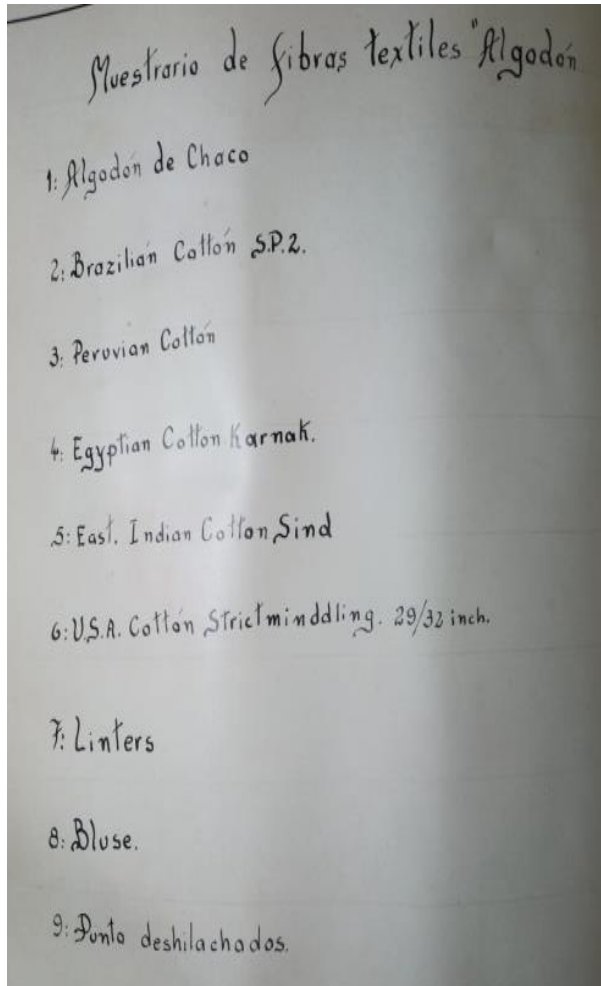 Muestrario de fibras textiles "Algodón
1: Algodón de Chaco
2: Brazilián Cottón S.P.2.
3: Peruvian Cottón
4: Egyptian Cotton Karnak.
5: East. Indian Cotton Sind
6: U.S.A. Cottón Strictminddling. 29/32 inch.
7: Linters
8: Bluse.
9: Punto deshilachados.